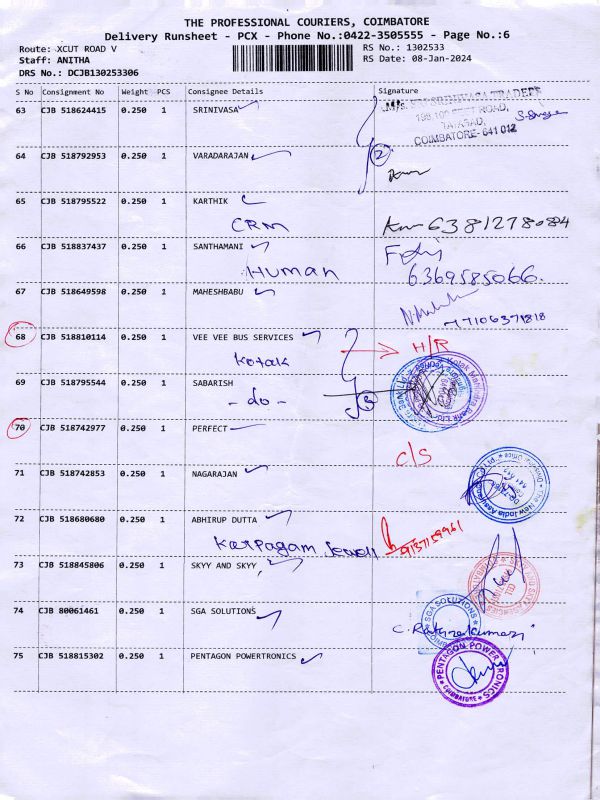 THE PROFESSIONAL COURIERS, COIMBATORE
Delivery Runsheet - PCX - Phone No.:0422-3505555 - Page No.:6
Route: XCUT ROAD V
RS No.: 1302533
Staff: ANITHA
RS Date: 08-Jan-2024
DRS No.: DCJB130253306
S No Consignment No Weight PCS Consignee Details Signature
63 CJB 518624415 0.250 1 SRINIVASA
COIMBATORE-641 012
64 CJB 518792953 0.250 1 VARADARAJAN 2
65 CJB 518795522 0.250 1 KARTHIK
CRM
66 CJB 518837437 0.250 1 SANTHAMANI
Human 6369585066.
67 CJB 518649598 0.250 1 MAHESHBABU
68 CJB 518810114 0.250 1 VEE VEE BUS SERVICES H/R
Kotak
69 CJB 518795544 0.250 1 SABARISH
- do - 3
70 CJB 518742977 0.250 1 PERFECT
C/S
71 CJB 518742853 0.250 1 NAGARAJAN
72 CJB 518680680 0.250 1 ABHIRUP DUTTA
Karpagam
73 CJB 518845806 0.250 1 SKYY AND SKYY
74 CJB 80061461 0.250 1 SGA SOLUTIONS
SGA SOLUTIONS
75 CJB 518815302 0.250 1 PENTAGON POWERTRONICS
PENTAGON POWERTRONICS
COIMBATORE